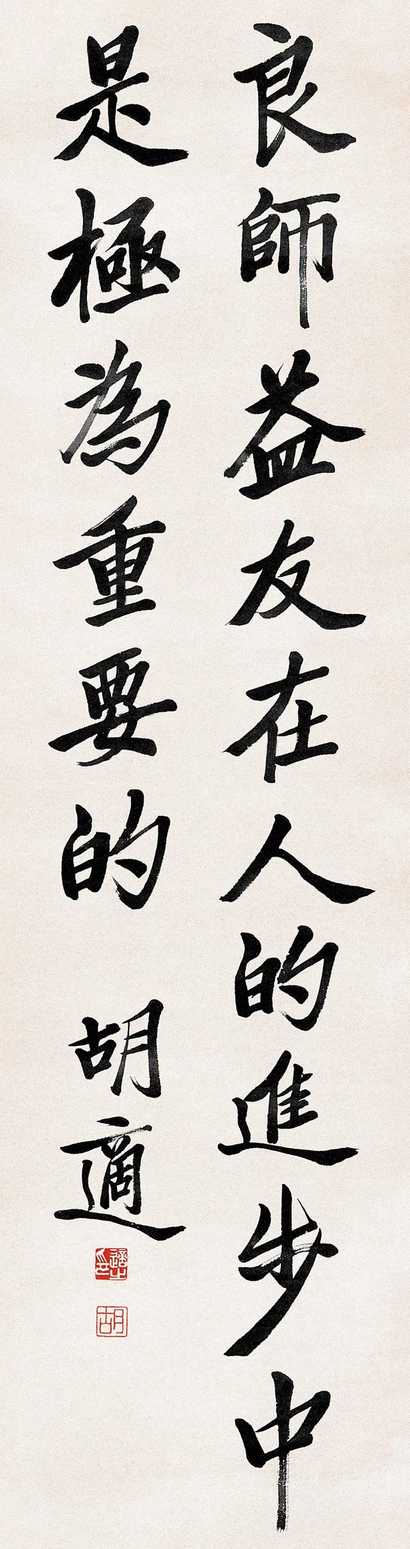 良師益友在人的進步中
是極為重要的 胡適
適之
胡